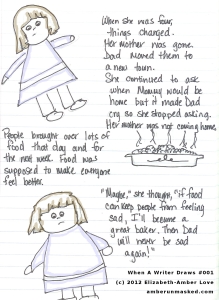 When she was four,
things changed.
Her mother was gone.
Dad moved them to
a new town.
She continued to ask
when Mommy would be
home but it made Dad
cry so she stopped asking.
Her mother was not coming home.
People brought over lots of
food that day and for
the next week. Food was
supposed to make everyone
feel better.
"Maybe," she thought, "if food
can keep people from feeling
sad, I'll become a
great baker. Then Dad
will never be sad
again!"
When A Writer Draws #001
(c) 2012 Elizabeth-Amber Love
amberunmasked.com